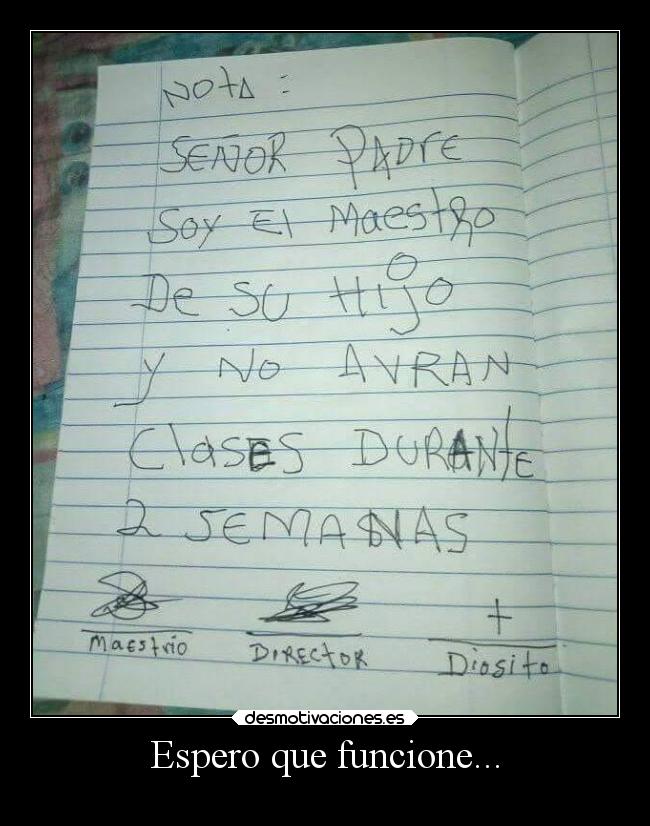 NOTA :
SEÑOR PADrE
Soy El MaestRo
De SU HijO
y NO AVRAN
ClasES DURANtE
2 SEMANAS
+
MaEstrio DIRECtOR Diosito
desmotivaciones.es
Espero que funcione...